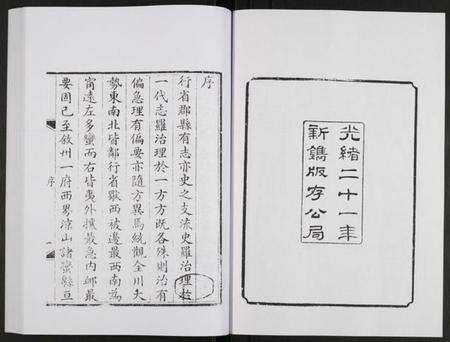 光緒二十一年
新鐫版存公局
序
行省郡縣有志亦史之支流史羅治理於
一代志羅治理於一方方既各殊則治有
偏急理有偏要亦隨方異焉統觀全川大
勢東南北皆鄰行省歐西被邊最西南為
甯遠左多蠻而右皆夷外撫最急內鄉最
要固已至敘州一府西界涼山諸蠻縣亘
序
一